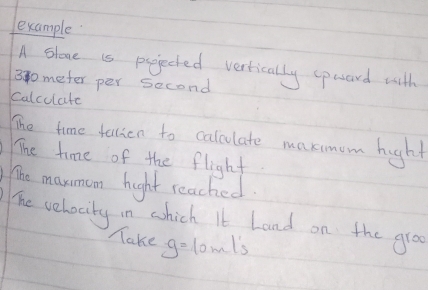 example
A Stone is projected vertically upward with
30 meter per second
Calculate
The time taken to calculate maximum hught
) The time of the flight.
) The maximum hught reached.
) The velocity in which It Land on the groo
Take g=10m/s